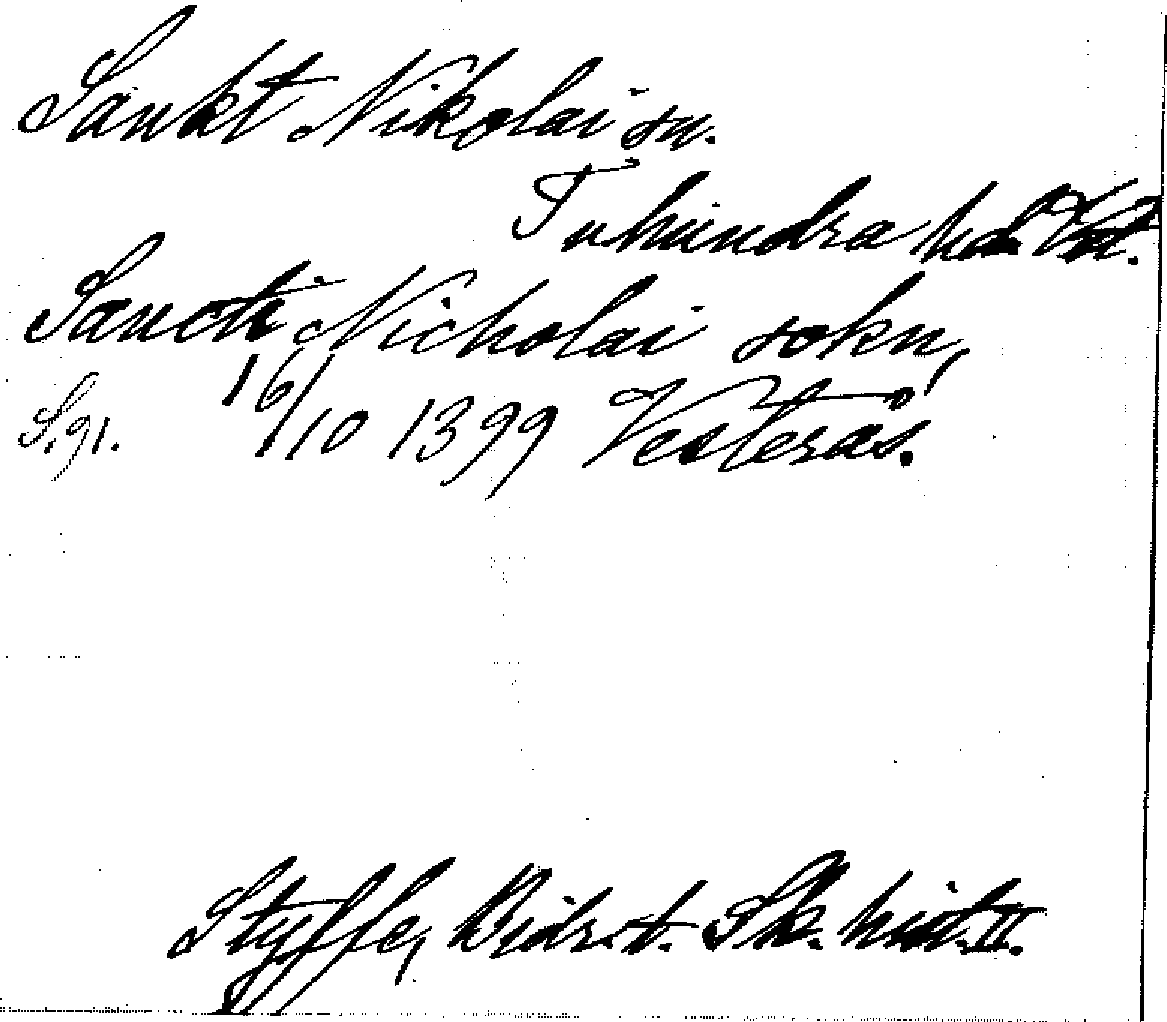 Sankt Nikolai sn.
Tuhundra hd Vstm.
Sancti Nicholai sokn,
S. 91. 16/10 1399 Vesterås.
Styffe, Bidr. t. Sk. hist. II.